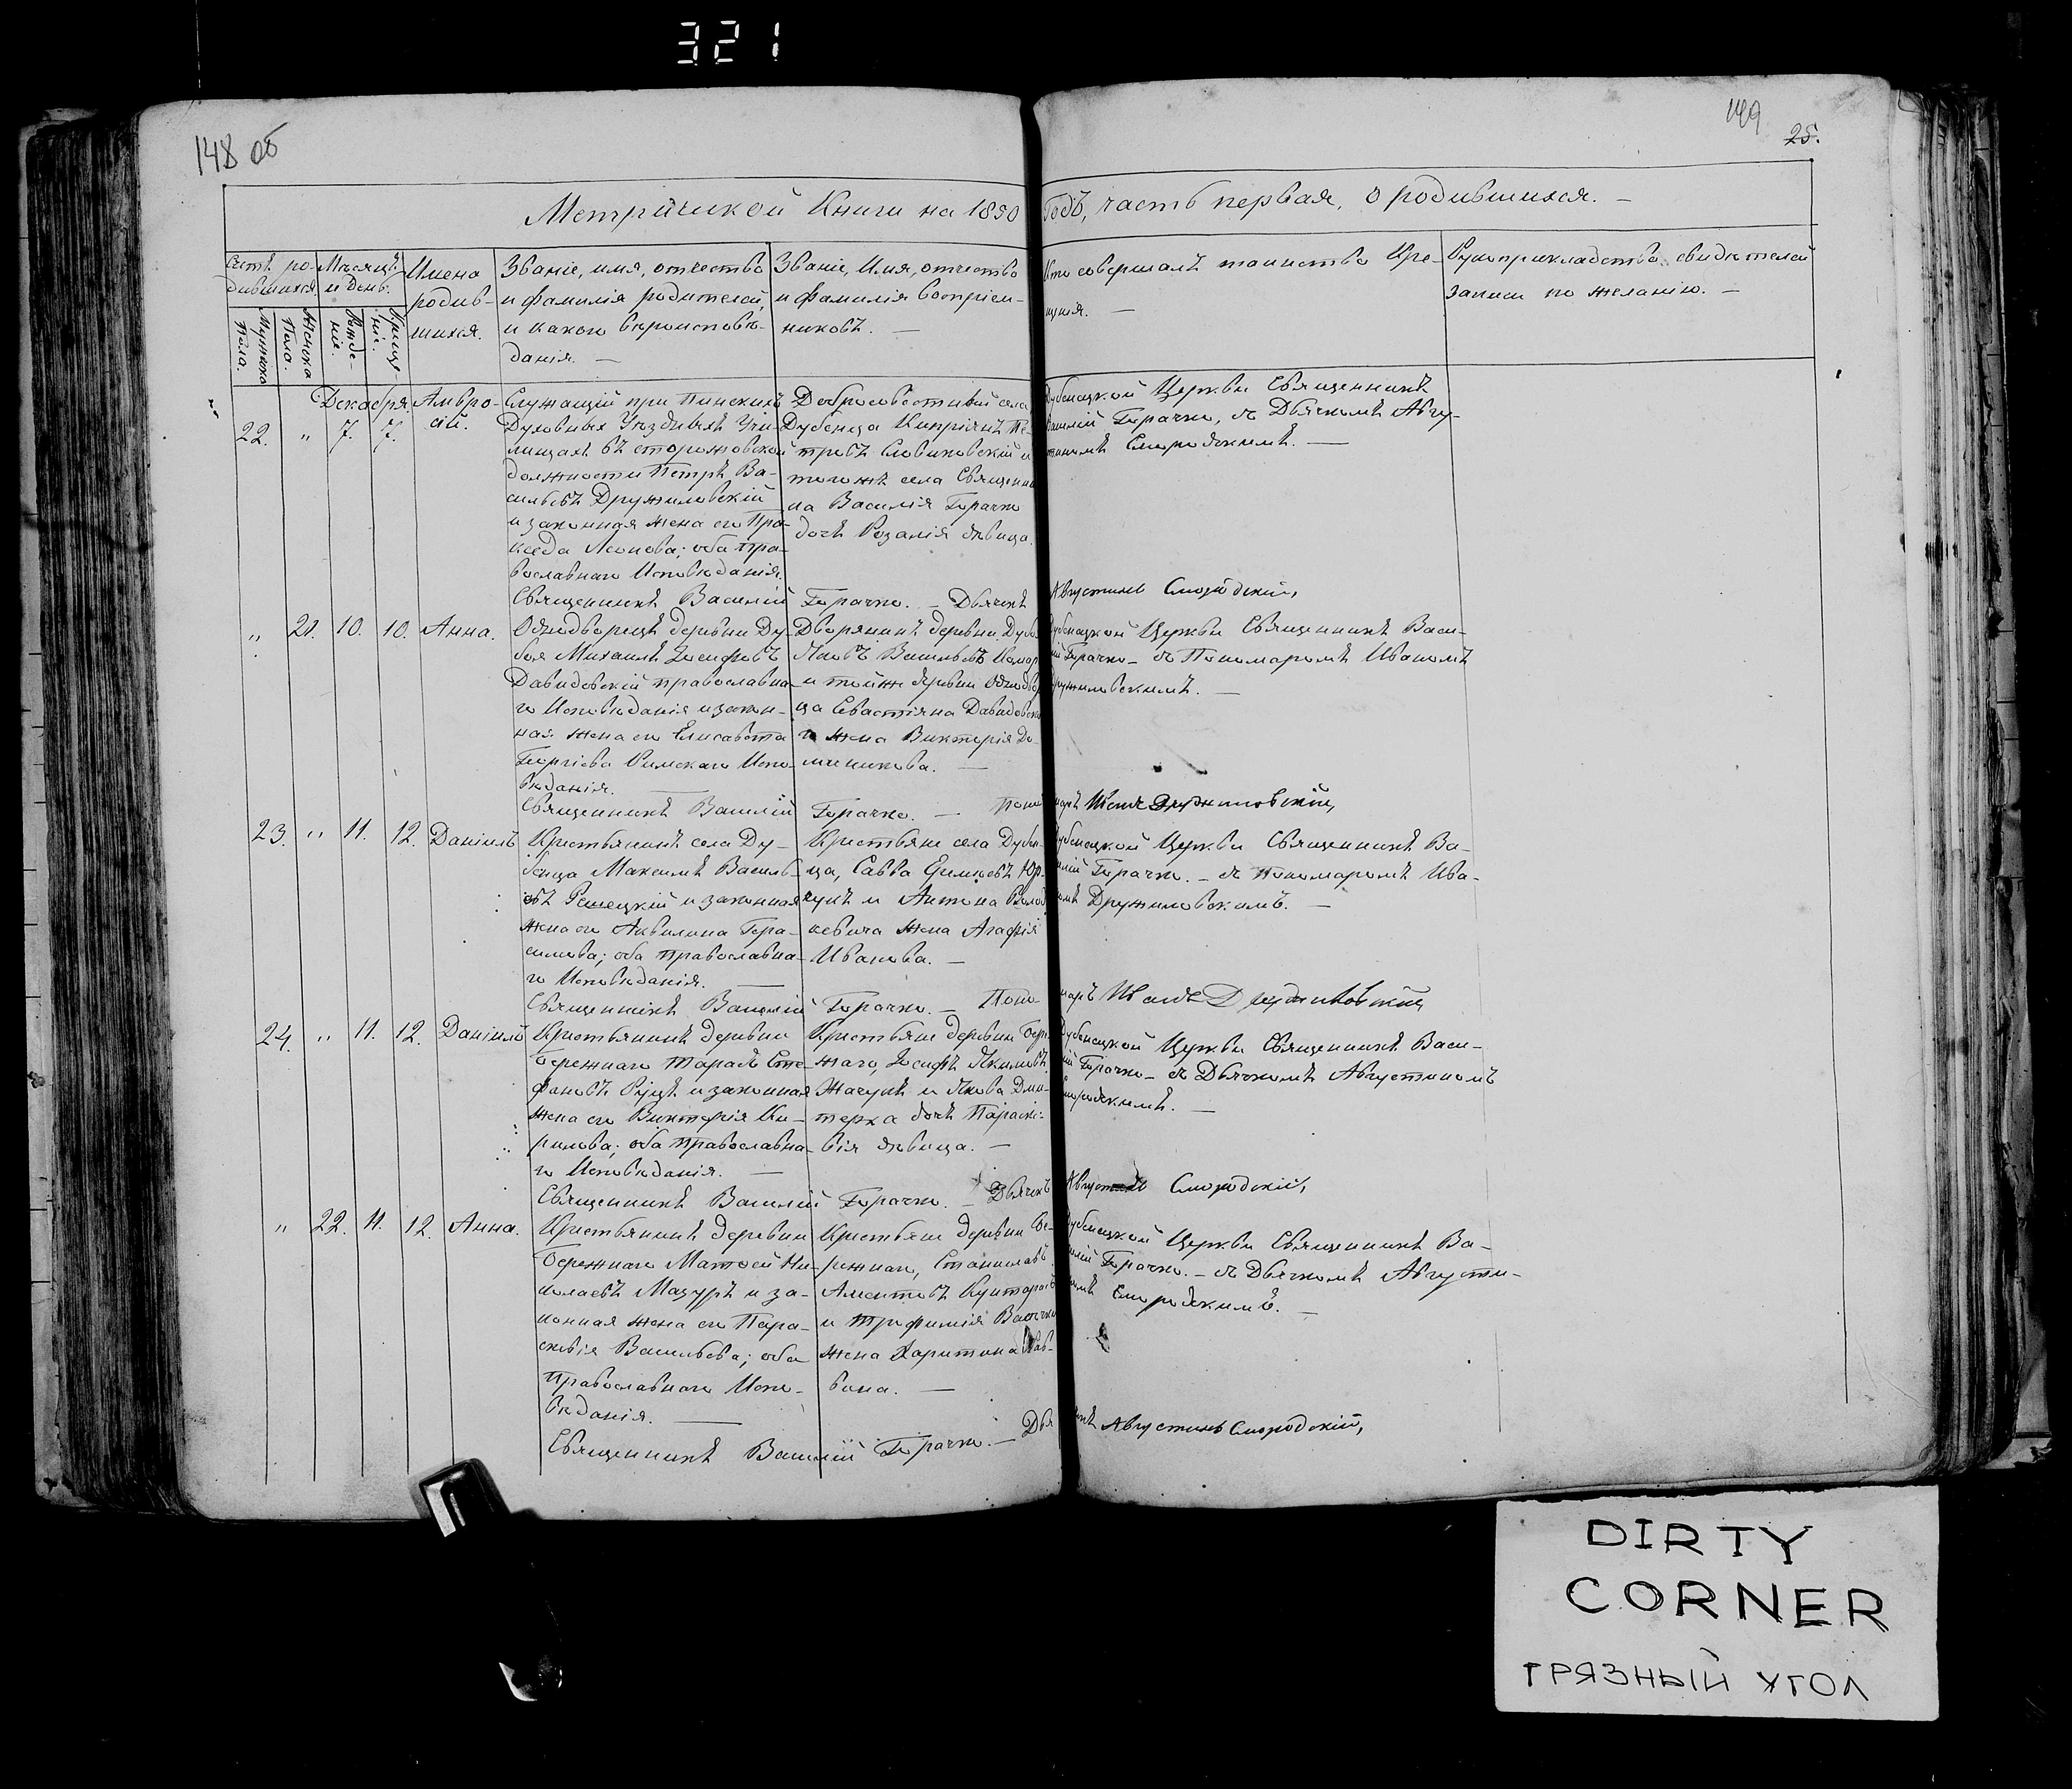 321
148 об
149
25.
Метрической Книги на 1850 Годъ, часть первая, о родившихся. —
Счетъ ро-
дившихся.
Мужеска
Пола.
Женска
Пола.
Мѣсяцъ
и день.
Рожде-
ніе.
Креще-
ніе.
Имена
родив-
шихся.
Званіе, имя, отчество
и фамилія родителей,
и какого вѣроисповѣ-
данія. —
Званіе, Имя, отчество
и фамилія воспріем-
никовъ. —
Кто совершалъ таинство Кре-
щенія. —
Рукоприкладство свидѣтелей
записи по желанію. —
Декабря
22. " 7. 7.
Амвро-
сій.
Служащій при Пинскихъ
Духовныхъ Уѣздныхъ Учи-
лищахъ въ сторожовской
должности Петръ Ва-
сильевъ Дружиловскій
и законная жена его Пра-
кседа Леонова; оба Пра-
вославнаго Исповѣданія.
Добросовѣстный села
Дубенца Кипріянъ Пе-
тровъ Словиковскій и
тогожъ села Священни
ка Василія Горачко
дочь Розалія дѣвица.
Дубенецкой Церкви Священникъ
Василій Горачко, съ Дьячкомъ Авгу-
стиномъ Смородскимъ. —
Священникъ Василій Горачко. — Дьячекъ Августинъ Смородскій,
" 21. 10. 10. Анна.
Однодворецъ деревни Ду-
боя Михаилъ Іосифовъ
Давидовскій православна-
го Исповѣданія и закон-
ная жена его Елисавета
Георгіева Римскаго Испо-
вѣданія. —
Дворянинъ деревни Дубо
Яковъ Васильевъ Комар
и тойже деревни Однодвор
ца Севастіяна Давидовска
го жена Викторія До-
миникова. —
Дубенецкой Церкви Священникъ Васи-
лій Горачко — съ Пономаремъ Иваномъ
Дружиловскимъ. —
Священникъ Василій Горачко. — Пономарь Иванъ Дружиловскій,
23. " 11. 12. Даніилъ
Крестьянинъ села Ду-
бенца Максимъ Василь-
евъ Решецкій и законная
жена его Аквилина Гера-
симова; оба православна-
го Исповѣданія. —
Крестьяне села Дубен-
ца, Савва Ефимовъ Юр-
чукъ и Антона Волод
кевича жена Агафія
Иванова. —
Дубенецкой Церкви Священникъ Ва-
силій Горачко. — съ Пономаремъ Ива-
номъ Дружиловскимъ. —
Священникъ Василій Горачко. — Пономарь Иванъ Дружиловскій,
24. " 11. 12. Даніилъ
Крестьянинъ деревни
Бережнаго Тарасъ Сте-
фановъ Руцъ и законная
жена его Викторія Ки-
рилова; оба православна-
го Исповѣданія. —
Крестьяне деревни Бере
жнаго, Іосифъ Якимовъ
Жачукъ и Якова Дми-
терка дочь Параске-
вія дѣвица. —
Дубенецкой Церкви Священникъ Васи-
лій Горачко — съ Дьячкомъ Августиномъ
Смородскимъ. —
Священникъ Василій Горачко. — Дьячекъ Августинъ Смородскій,
" 22. 11. 12. Анна.
Крестьянинъ деревни
Бережнаго Матвей Ни-
колаевъ Мазуръ и за-
конная жена его Пара-
скевія Васильева; оба
православнаго Испо-
вѣданія. —
Крестьяне деревни Бе-
режнаго, Станиславъ
Аментовъ
и Трофимія
жена Харитина Сав-
вона. —
Дубенецкой Церкви Священникъ Ва-
силій Горачко. — съ Дьячкомъ Августи-
номъ Смородскимъ. —
Священникъ Василій Горачко. — Дьячекъ Августинъ Смородскій,
DIRTY
CORNER
ГРЯЗНЫЙ УГОЛ